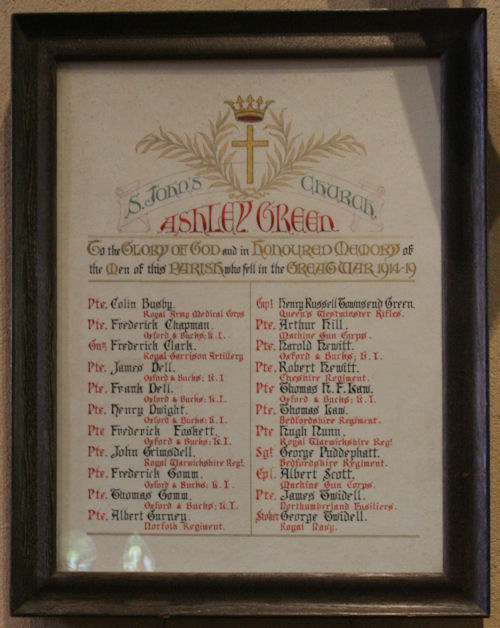 S. JOHN'S CHURCH.
ASHLEY GREEN
To the GLORY OF GOD and in HONOURED MEMORY of
the Men of this PARISH who fell in the GREAT WAR 1914-19
Pte. Colin Busby.
Royal Army Medical Corps
Pte. Frederick Chapman.
Oxford & Bucks; L.I.
Gnr. Frederick Clark.
Royal Garrison Artillery
Pte. James Dell.
Oxford & Bucks; L.I
Pte. Frank Dell.
Oxford & Bucks; L.I.
Pte. Henry Dwight.
Oxford & Bucks; L.I.
Pte Frederick Foskett.
Oxford & Bucks; L.I.
Pte. John Grimsdell.
Royal Warwickshire Regt.
Pte. Frederick Gomm.
Oxford & Bucks; L.I.
Pte. Thomas Gomm.
Oxford & Bucks; L.I.
Pte. Albert Gurney.
Norfolk Regiment.
Capt Henry Russell Townsend Green.
Queen's Westminster Rifles.
Pte. Arthur Hill.
Machine Gun Corps.
Pte. Harold Hewitt.
Oxford & Bucks; L.I.
Pte. Robert Hewitt.
Cheshire Regiment.
Pte Thomas H. F. Kaw.
Oxford & Bucks; L.I.
Pte. Thomas Kaw.
Bedfordshire Regiment.
Pte Hugh Nunn.
Royal Warwickshire Regt.
Sgt. George Puddephatt.
Bedfordshire Regiment.
Cpl. Albert Scott.
Machine Gun Corps.
Pte. James Twidell.
Northumberland Fusiliers.
Stoker George Twidell.
Royal Navy.